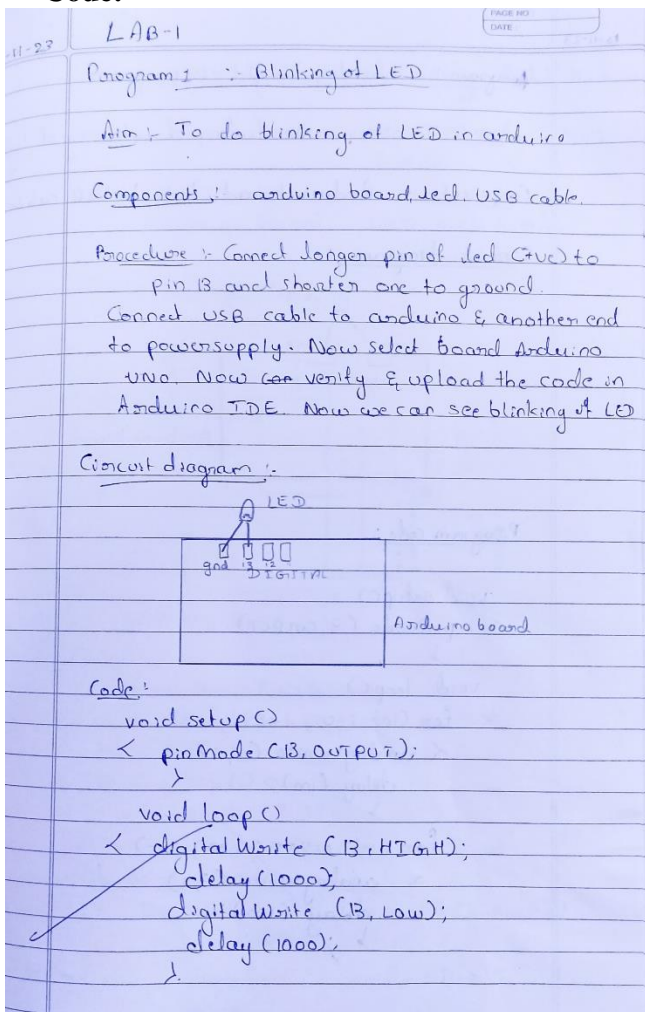 Code:
PAGE NO
DATE
-11-23
LAB-1
Program 1 :- Blinking of LED
Aim :- To do blinking of LED in arduino
Components :- arduino board, led, USB cable.
Procedure :- Connect longer pin of led (+ve) to
pin 13 and shorter one to ground.
Connect USB cable to arduino & another end
to powersupply. Now select board Arduino
UNO. Now can verify & upload the code in
Arduino IDE. Now we can see blinking of LED
Circuit diagram :-
LED
gnd 13 12
DIGITAL
Arduino board
Code :
void setup ()
{ pinMode (13, OUTPUT);
}
void loop ()
{ digital Write (13, HIGH);
delay (1000);
digital Write (13, Low);
delay (1000);
}